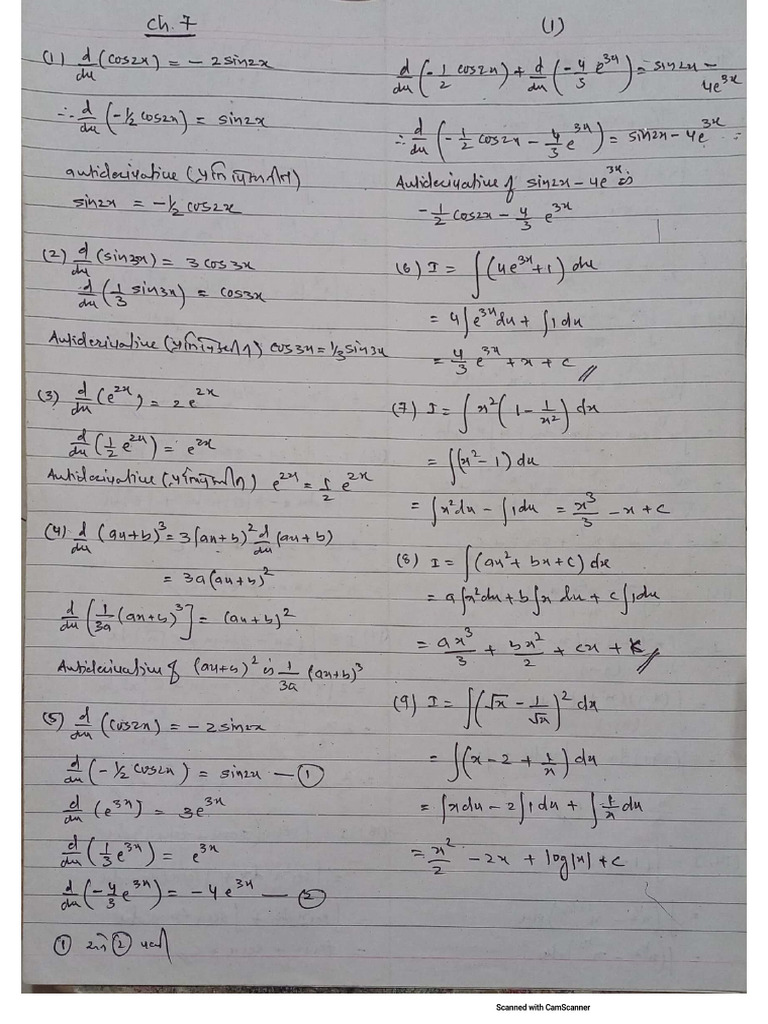 Ch. 7
(1) d/dx (cos2x) = - 2 sin2x
∴ d/dx (-1/2 cos2x) = sin2x
antiderivative (પ્રતિવિકલિત)
sin2x = -1/2 cos2x
(2) d/dx (sin3x) = 3 cos3x
d/dx (1/3 sin3x) = cos3x
Antiderivative (પ્રતિવિકલિત) cos3x = 1/3 sin3x
(3) d/dx (e^2x) = 2e^2x
d/dx (1/2 e^2x) = e^2x
Antiderivative (પ્રતિવિકલિત) e^2x = 1/2 e^2x
(4) d/dx (ax+b)^3 = 3(ax+b)^2 d/dx (ax+b)
= 3a(ax+b)^2
d/dx [1/3a (ax+b)^3] = (ax+b)^2
Antiderivative of (ax+b)^2 is 1/3a (ax+b)^3
(5) d/dx (cos2x) = - 2 sin2x
d/dx (-1/2 cos2x) = sin2x — ①
d/dx (e^3x) = 3e^3x
d/dx (1/3 e^3x) = e^3x
d/dx (-4/3 e^3x) = - 4 e^3x — ②
① અને ② પરથી
(1)
d/dx (-1/2 cos2x) + d/dx (-4/3 e^3x) = sin2x - 4e^3x
∴ d/dx (-1/2 cos2x - 4/3 e^3x) = sin2x - 4e^3x
Antiderivative of sin2x - 4e^3x is
-1/2 cos2x - 4/3 e^3x
(6) I = ∫ (4e^3x + 1) dx
= 4 ∫ e^3x dx + ∫ 1 dx
= 4/3 e^3x + x + c //
(7) I = ∫ x^2 (1 - 1/x^2) dx
= ∫ (x^2 - 1) dx
= ∫ x^2 dx - ∫ 1 dx = x^3/3 - x + c
(8) I = ∫ (ax^2 + bx + c) dx
= a ∫ x^2 dx + b ∫ x dx + c ∫ 1 dx
= ax^3/3 + bx^2/2 + cx + k //
(9) I = ∫ (√x - 1/√x)^2 dx
= ∫ (x - 2 + 1/x) dx
= ∫ x dx - 2 ∫ 1 dx + ∫ 1/x dx
= x^2/2 - 2x + log|x| + c
Scanned with CamScanner